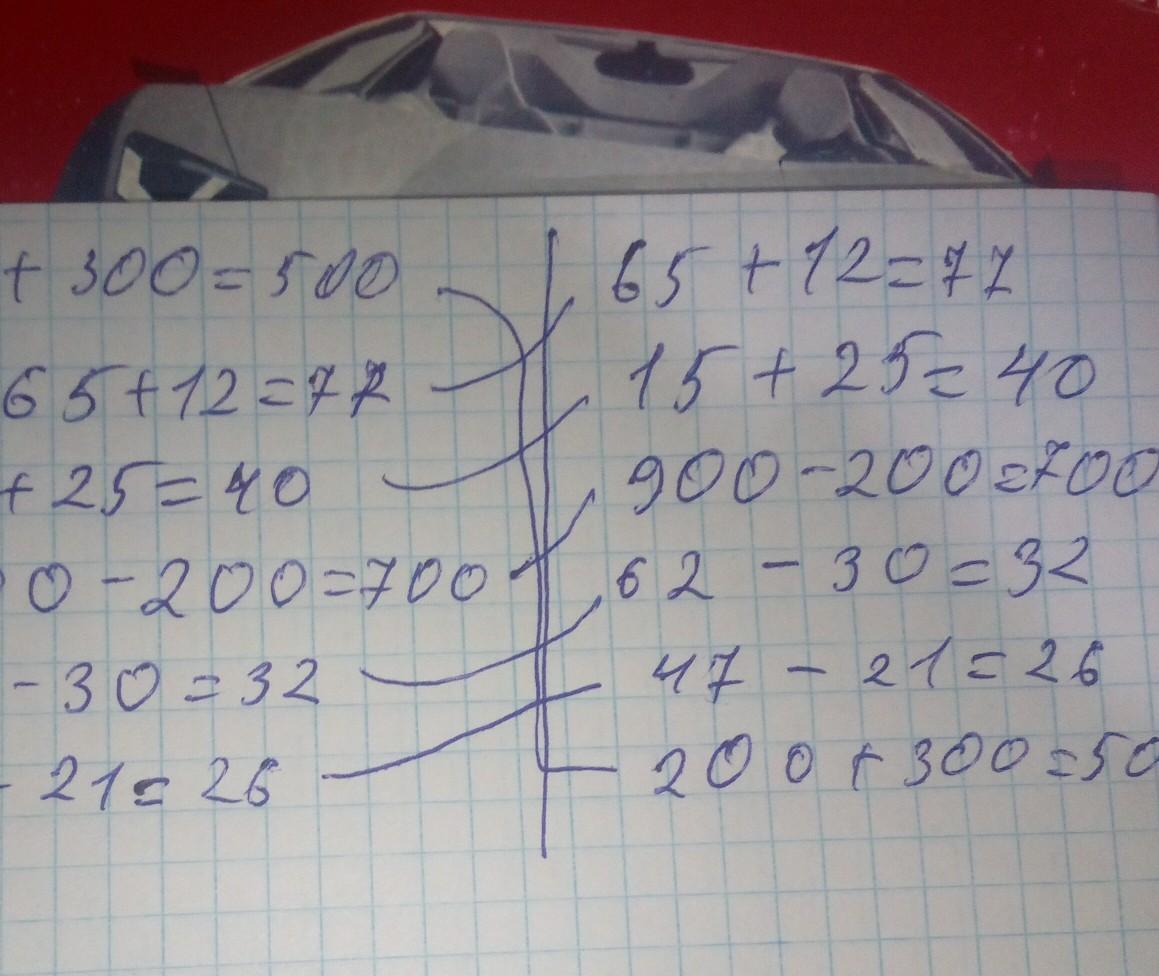 + 300 = 500
65 + 12 = 77
+ 25 = 40
0 - 200 = 700
- 30 = 32
- 21 = 26
65 + 12 = 77
15 + 25 = 40
900 - 200 = 700
62 - 30 = 32
47 - 21 = 26
200 + 300 = 50